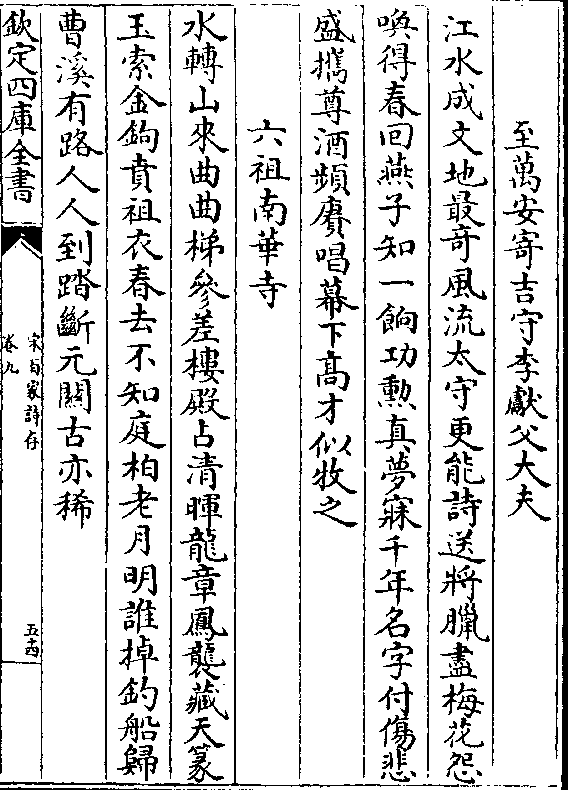 至萬安寄吉守李獻父大夫
江水成文地最奇風流太守更能詩送將臘盡梅花怨
喚得春回燕子知一餉功勲真夢寐千年名字付傷悲
盛攜尊酒頻賡唱幕下髙才似牧之
六祖南華寺
水轉山來曲曲梯參差樓殿占清暉龍章鳳襲藏天篆
玉索金鉤賁祖衣春去不知庭柏老月明誰掉釣船歸
曹溪有路人人到踏斷元關古亦稀
欽定四庫全書
宋百家詩存
卷九
五十四